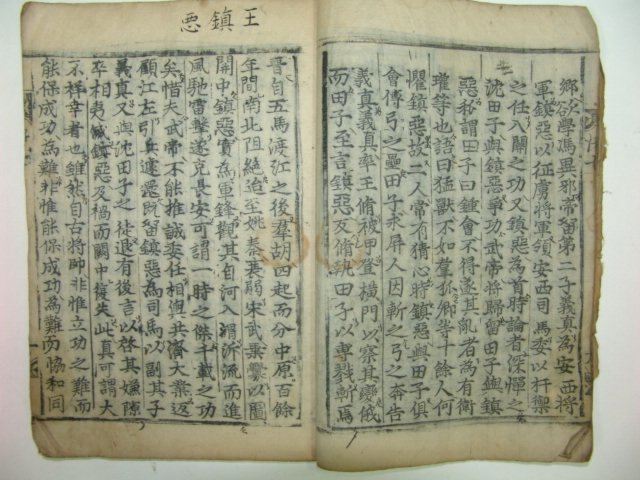 王鎮惡
鄉欲學馮異邪帝留第二子義真為安西將
軍鎮惡以征虜將軍領安西司馬委以扞禦
之任入關之功又鎮惡為首時論者深憚之
沈田子與鎮惡爭功武帝將歸留田子與鎮
惡私謂田子曰鍾會不得遂其亂者為有衛
瓘等也語曰猛獸不如羣狐卿等十餘人何
懼鎮惡故二人常有猜心時鎮惡與田子俱
會傅弘之壘田子求屏人因斬之弘之奔告
義真義真率王脩被甲登橫門以察其變俄
而田子至言鎮惡反脩執田子以專戮斬焉
晉自五馬渡江之後羣胡四起而分中原百餘
年間南北阻絕迨至姚秦衰弱宋武乘釁以圖
關中鎮惡實為軍鋒觀其自河入渭泝流而進
風馳電擊遂克長安可謂一時之傑千載之功
矣惜夫武帝不能推誠委任相與共濟大業返
顧江左引兵遽還既留鎮惡為司馬以副其子
義真又與沈田子之徒退有後言以啓其嫌隙
卒相夷滅鎮惡及禍而關中復失此真可謂大
不祥幸者也雖然自古將帥非惟立功之難而
能保成功為難非惟能保成功為難而恊和同